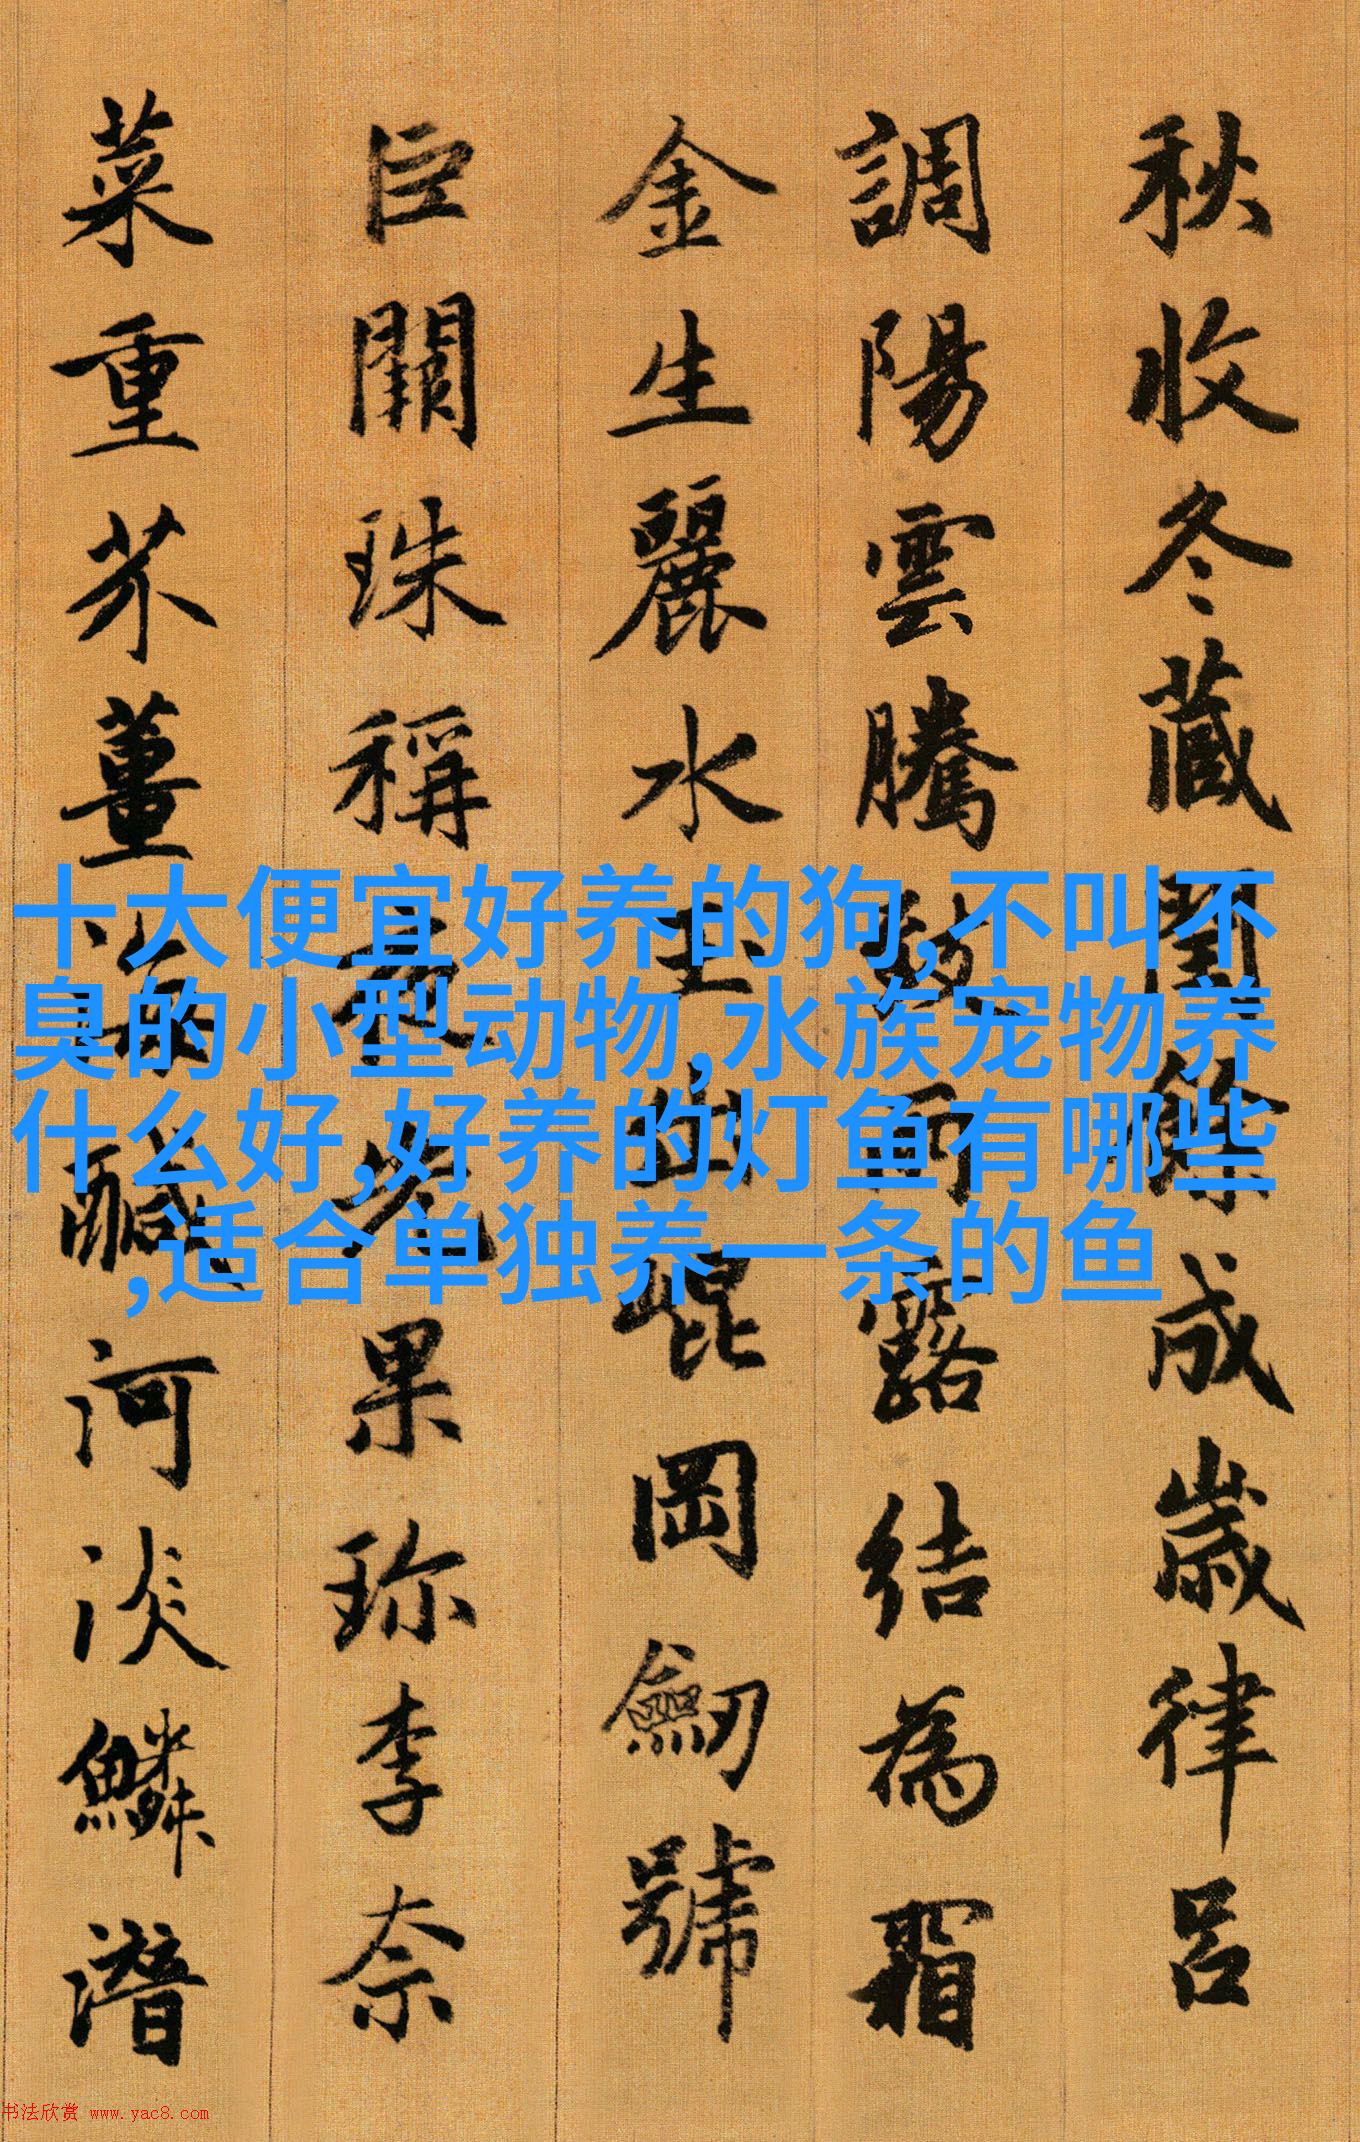 秋收冬藏閏餘成歲律呂
調陽雲騰致雨露結為霜
金生麗水玉出崐岡劒號
巨闕珠稱夜光果珍李奈
菜重芥薑海鹹河淡鱗潛
十大便宜好养的狗,不叫不
臭的小型动物,水族宠物养
什么好,好养的灯鱼有哪些
,适合单独养一条的鱼
书法欣赏 www.yac8.com